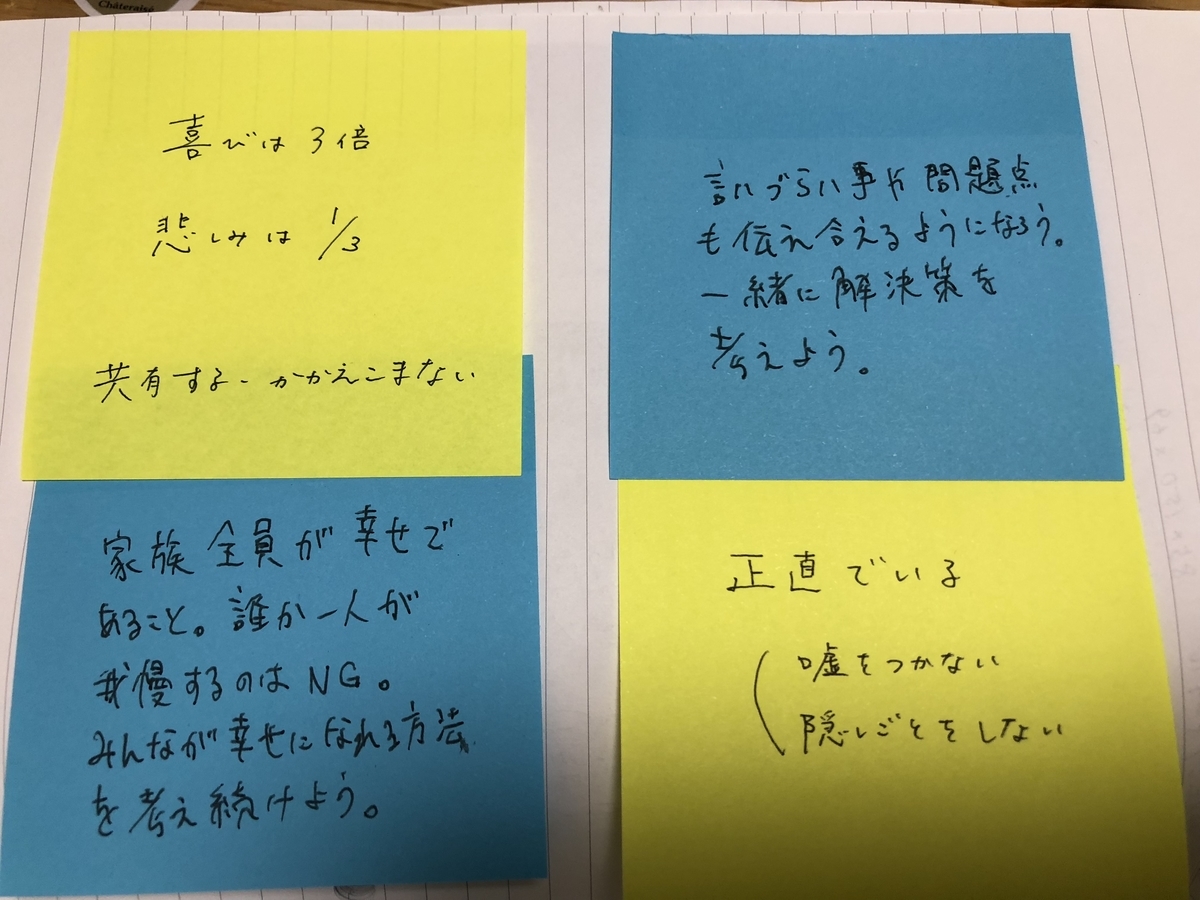 Châteraisé
喜びは3倍
悲しみは1/3
共有する。かかえこまない
言いづらい事や問題点
も伝え合えるようになろう。
一緒に解決策を
考えよう。
家族全員が幸せで
あること。誰か一人が
我慢するのはNG。
みんなが幸せになれる方法
を考え続けよう。
正直でいる
嘘をつかない
隠しごとをしない